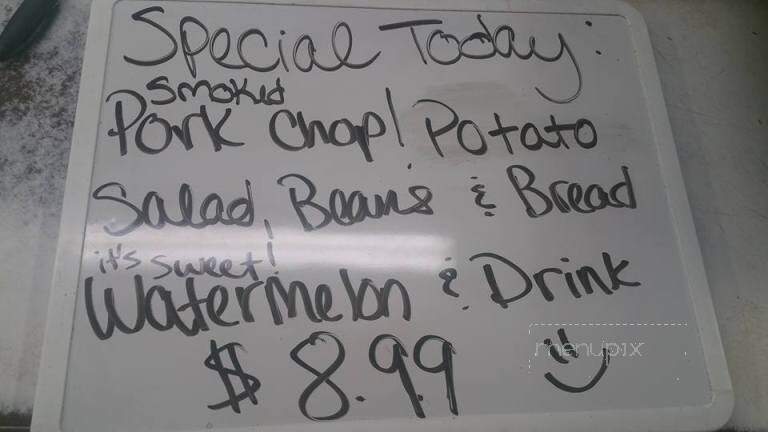 Special Today:
Smoked
Pork Chop! Potato
Salad, Beans & Bread
it's sweet!
Watermelon & Drink
$ 8.99
menupix